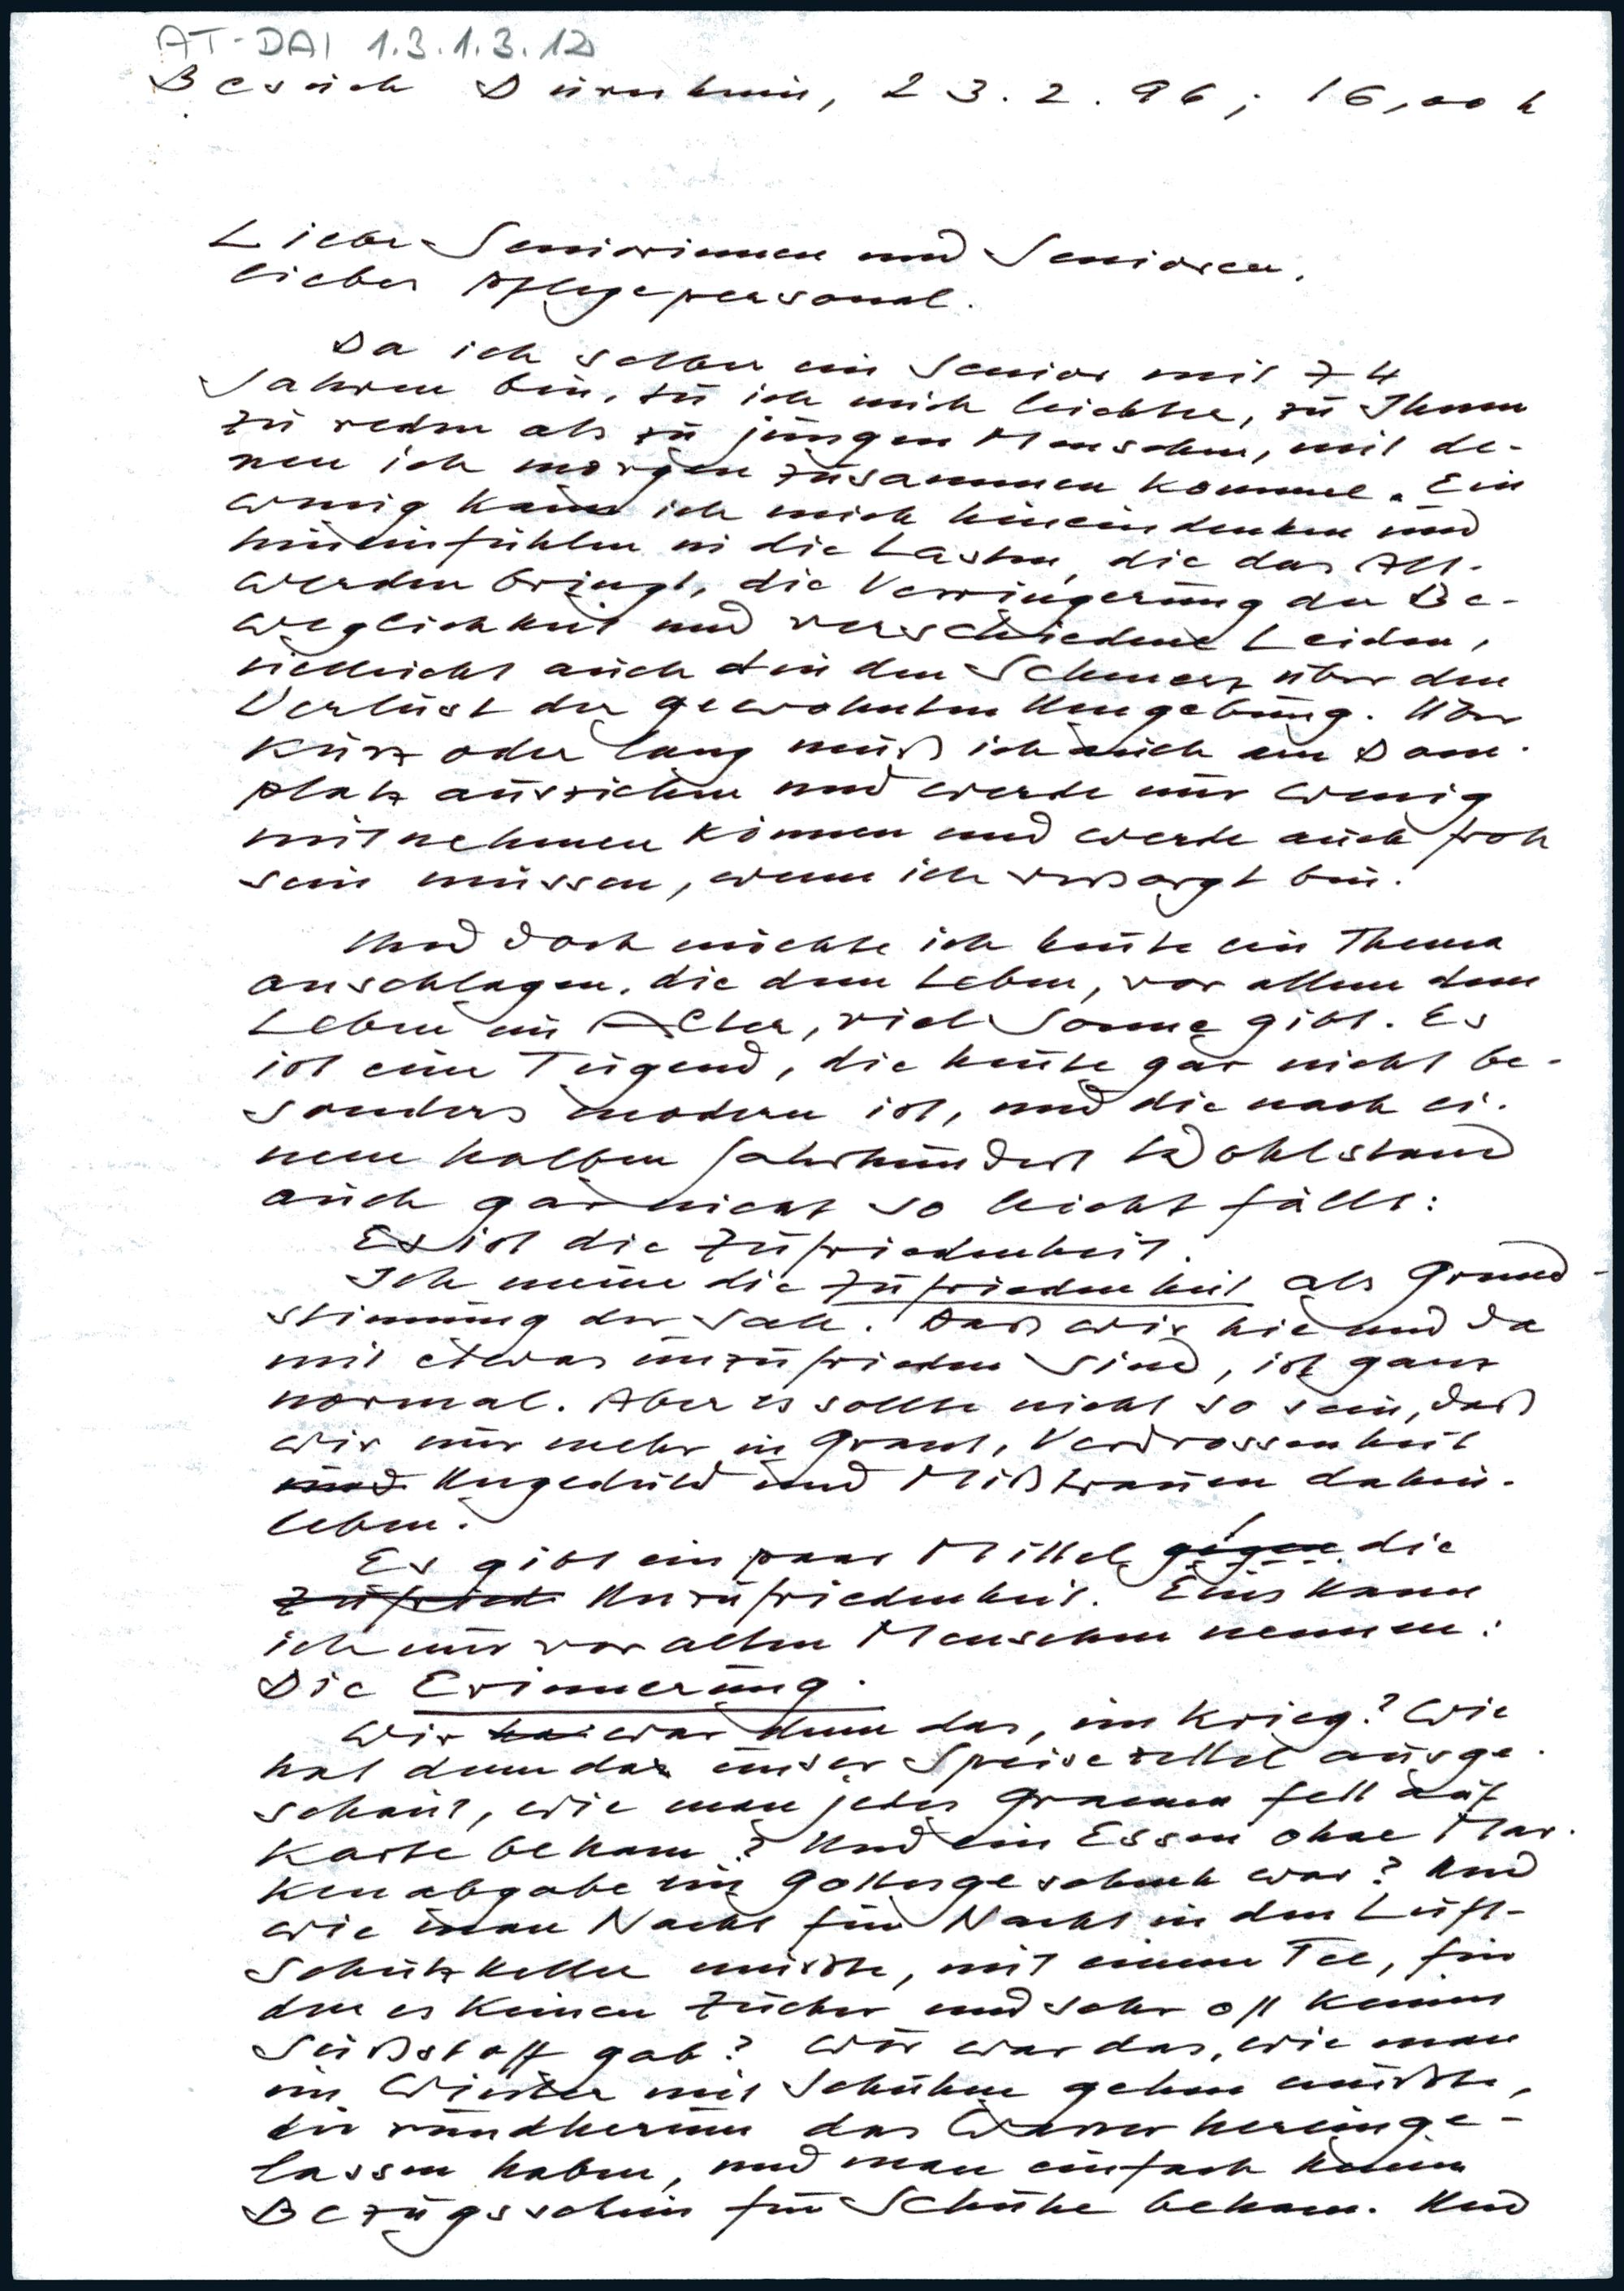 AT-DAI 1.3.1.3.12
Besuch Dürnkrnin, 23.2.96; 16,00 h
Liebe Seniorinnen und Senioren,
liebes Pflegepersonal.
Da ich selber ein Senior mit 74
Jahren bin, tu ich mich leichter, zu Ihnen
zu reden als zu jungen Menschen, mit de-
nen ich morgen zusammen komme. Ein
wenig kann ich mich hineindenken und
hineinfühlen in die Lasten, die das Alt-
werden bringt, die Verringerung der Be-
weglichkeit und verschiedene Leiden,
vielleicht auch in den Schmerz über den
Verlust der gewohnten Umgebung. Über
kurz oder lang muß ich auch am Dom-
platz ausziehen und werde nur wenig
mitnehmen können und werde auch froh
sein müssen, wenn ich versorgt bin.
Und doch möchte ich heute ein Thema
anschlagen, die dem Leben, vor allem dem
Leben im Alter, viel Sonne gibt. Es
ist eine Tugend, die heute gar nicht be-
sonders modern ist, und die nach ei-
nem halben Jahrhundert Wohlstand
auch gar nicht so leicht fällt:
Es ist die Zufriedenheit.
Ich meine die Zufriedenheit als Grund-
stimmung der Seele. Daß wir hie und da
mit etwas unzufrieden sind, ist ganz
normal. Aber es sollte nicht so sein, daß
wir nur mehr in Grant, Verdrossenheit
und Ungeduld und Mißtrauen dahin-
leben.
Es gibt ein paar Mittel gegen die
Zufried Unzufriedenheit. Eins kann
ich nur vor alten Menschen nennen:
Die Erinnerung.
Wie war denn das, im Krieg? Wie
hat denn da unser Speisezettel ausge-
schaut, wie man jedes Gramm Fett auf
Karte bekam? Und ein Essen ohne Mar-
kenabgabe ein Gottesgeschenk war? Und
wie man Nacht für Nacht in den Luft-
schutzkeller mußte, mit einem Tee, für
den es keinen Zucker und sehr oft keinen
Süßstoff gab? Wie war das, wie man
im Winter mit Schuhen gehen mußte,
die rundherum das Wasser hereinge-
lassen haben, und man einfach keinen
Bezugsschein für Schuhe bekam. Und